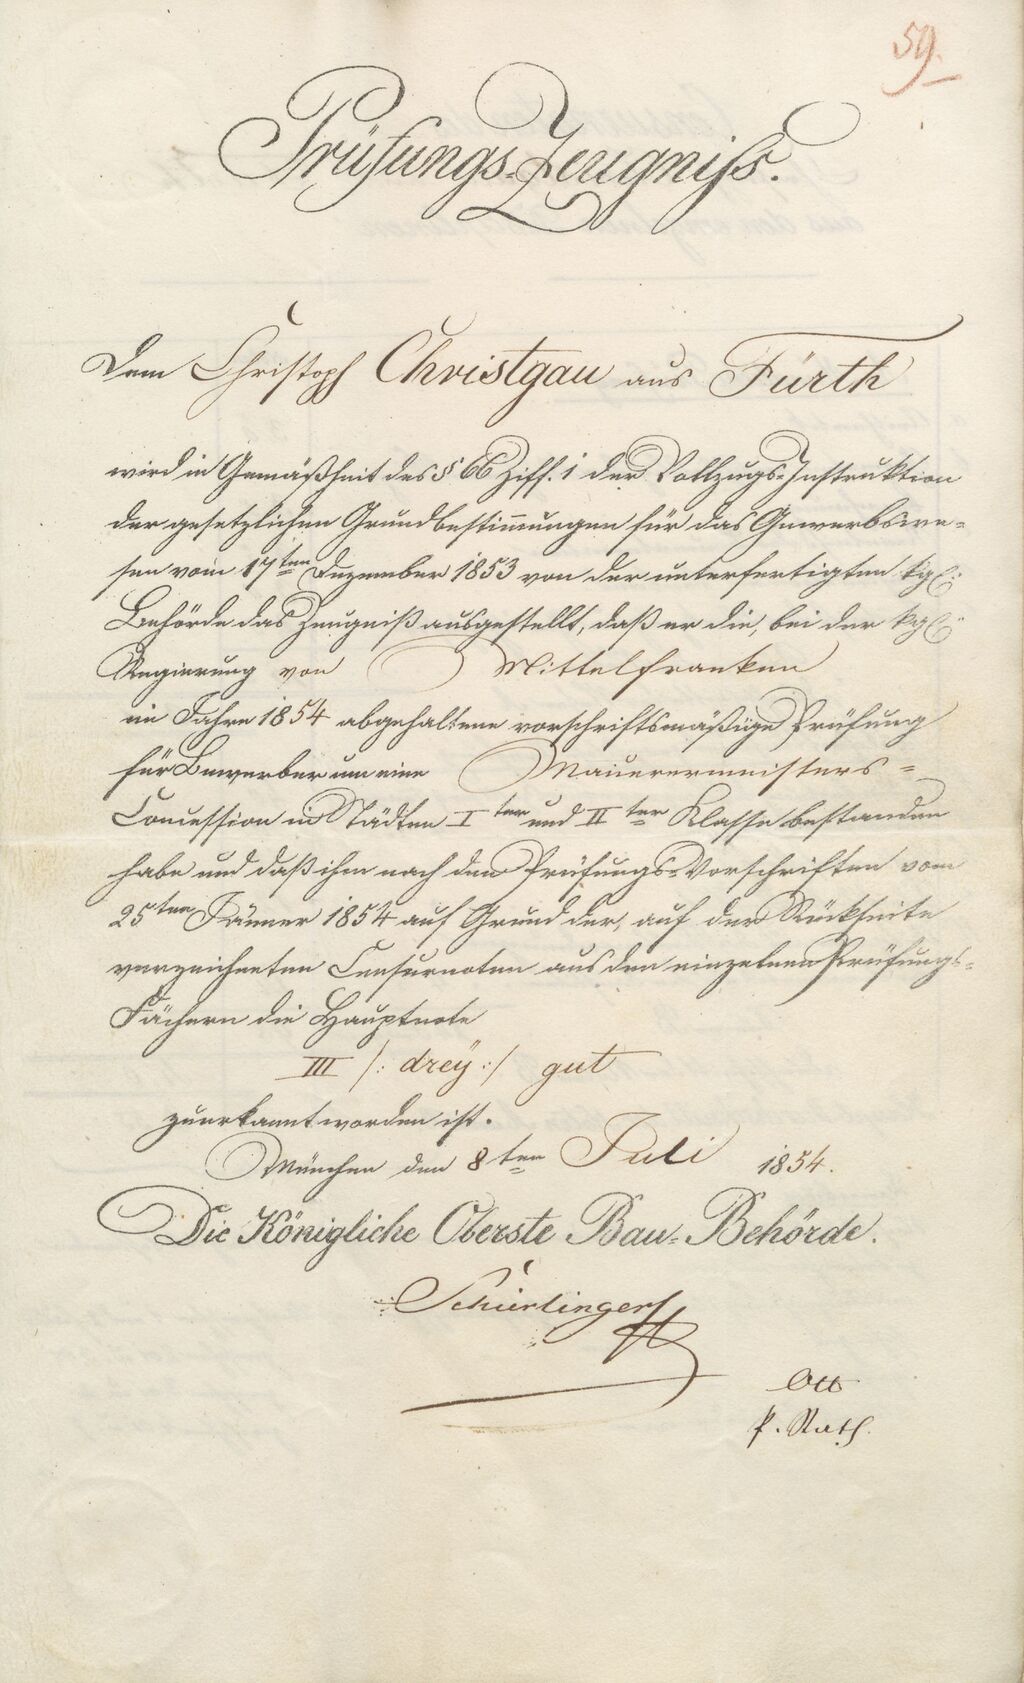 59.
Prüfungs-Zeugniss.
Dem Christoph Christgau aus Fürth
wird in Gemäßheit des § 66 Ziff. 1 der Vollzugs-Instruktion
der gesetzlichen Grundbestim̅ungen für das Gewerbswe=
sen vom 17ten Dezember 1853 von der unterfertigten kgl:
Behörde das Zeugniß ausgestellt, daß er die, bei der kgl:
Regierung von Mittelfranken
im Jahre 1854 abgehaltene vorschriftsmäßige Prüfung
für Bewerber um eine Mauerermeisters=
Concession in Städten Iter und IIter Klasse bestanden
habe und daß ihm nach den Prüfungs-Vorschriften vom
25ten Jänner 1854 auf Grund der, auf der Rückseite
verzeichneten Censurnoten aus den einzelnen Prüfungs=
Fächern die Hauptnote
III /: dreÿ :/ gut
zuerkannt worden ist.
München den 8ten Juli 1854.
Die Königliche Oberste Bau=Behörde.
Schierlinger
Ott
Rath.